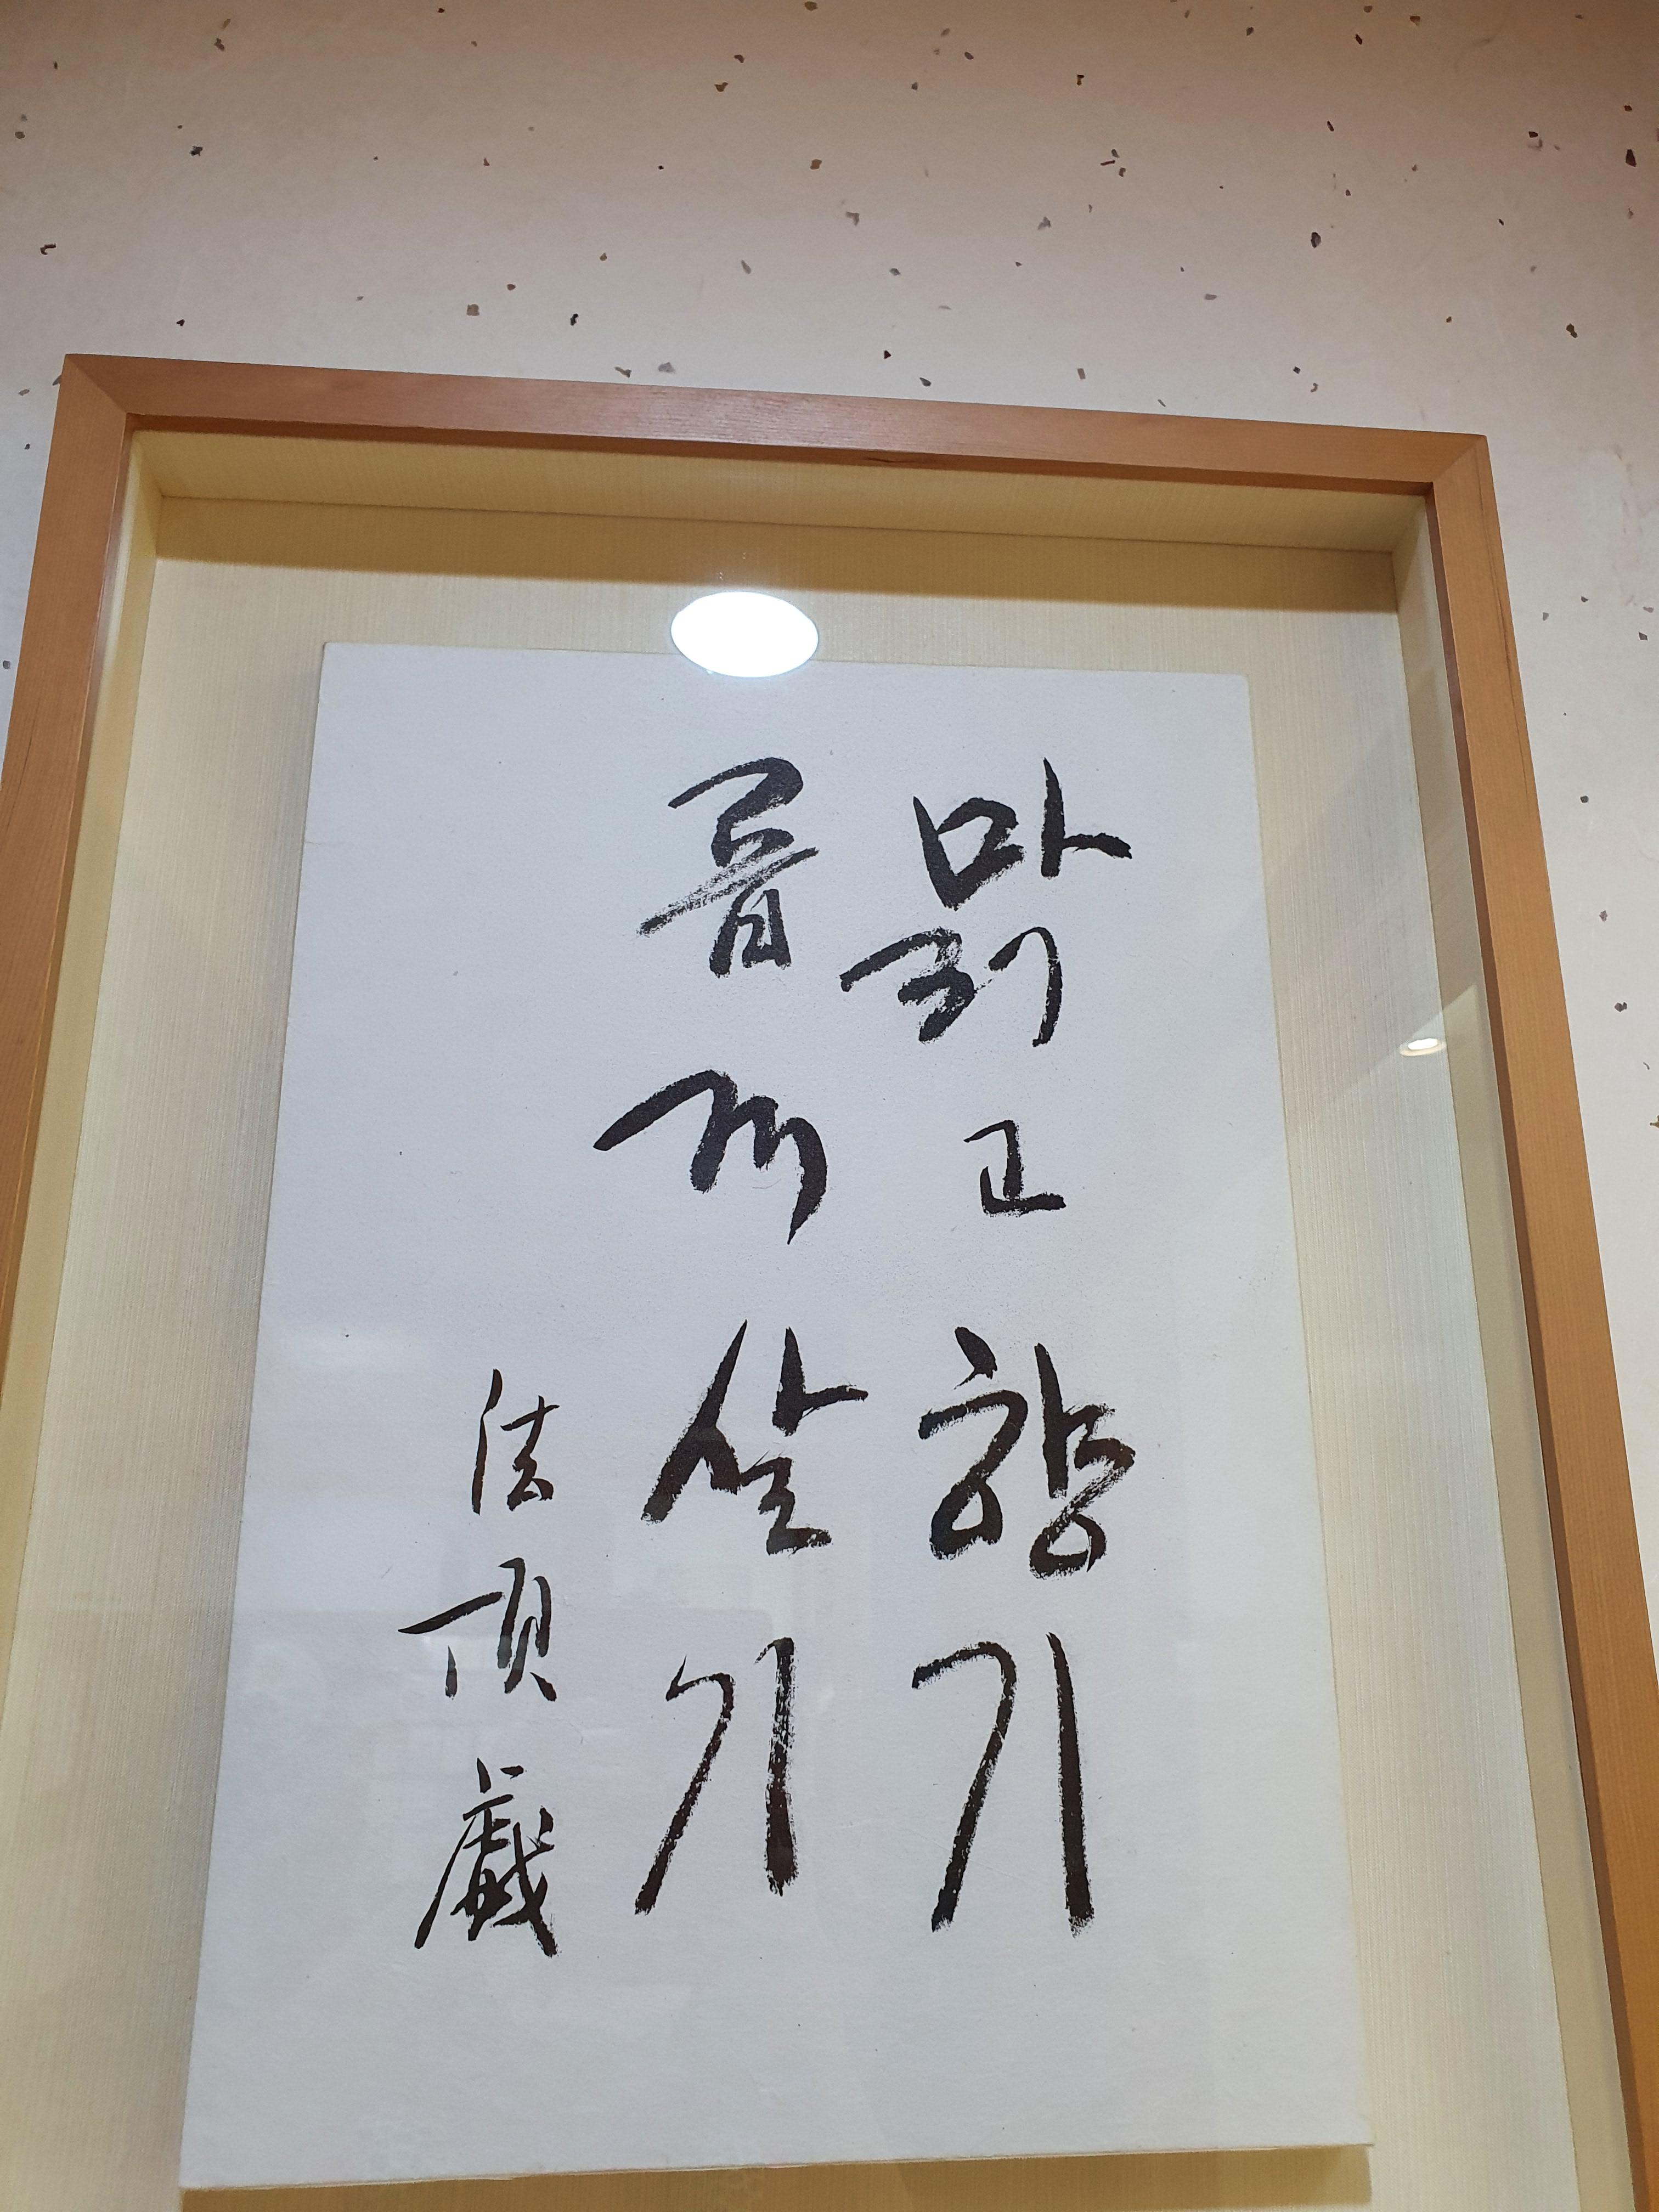 맑고 향기
롭게 살기
法頂 戱